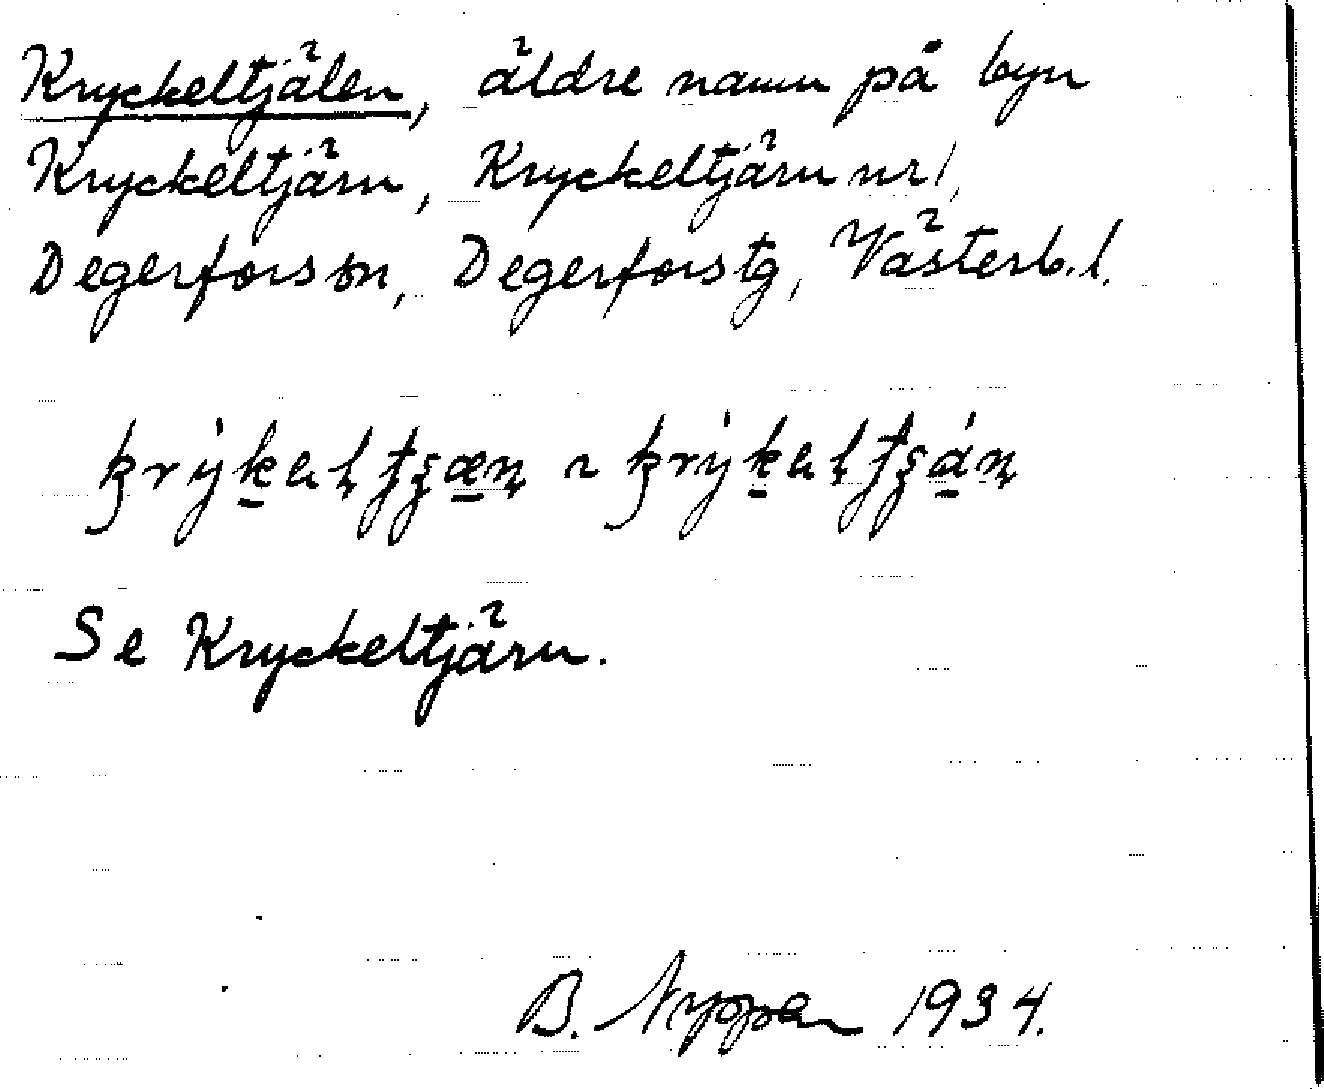 Kryckeltjälen, äldre namn på byn
Kryckeltjärn, Kryckeltjärn nr 1,
Degerfors sn, Degerfors tg, Västerb. l.
Se Kryckeltjärn.
B. 1934.